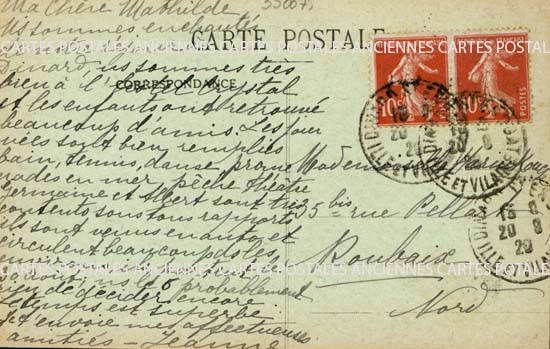 Ma Chère Mathilde
Nous sommes enchantés
CARTE POSTALE
CARTES POSTALES ANCIENNES CARTES POSTALES ANCIENNES CARTES POSTALES
Dinard nous sommes très
bien à l'hôtel Crystal
CORRESPONDANCE
et les enfants ont retrouvé
beaucoup d'amis. Les jour
nées sont bien remplies
bain, tennis, danse prome
nades en mer pêche théâtre
Germaine et Albert sont très
contents sous tous rapports
ils sont venus en auto et
circulent beaucoup
6 probablement
rien de décider encore
Le temps est superbe
et envoie mes affectueuses
amitiés - Jeanne
Mademoiselle
35 bis rue Pellart
Roubaix
Nord
10c
POSTES
10c
POSTES
DINARD
ILLE ET VILAINE
20
ILLE ET VILAINE
20